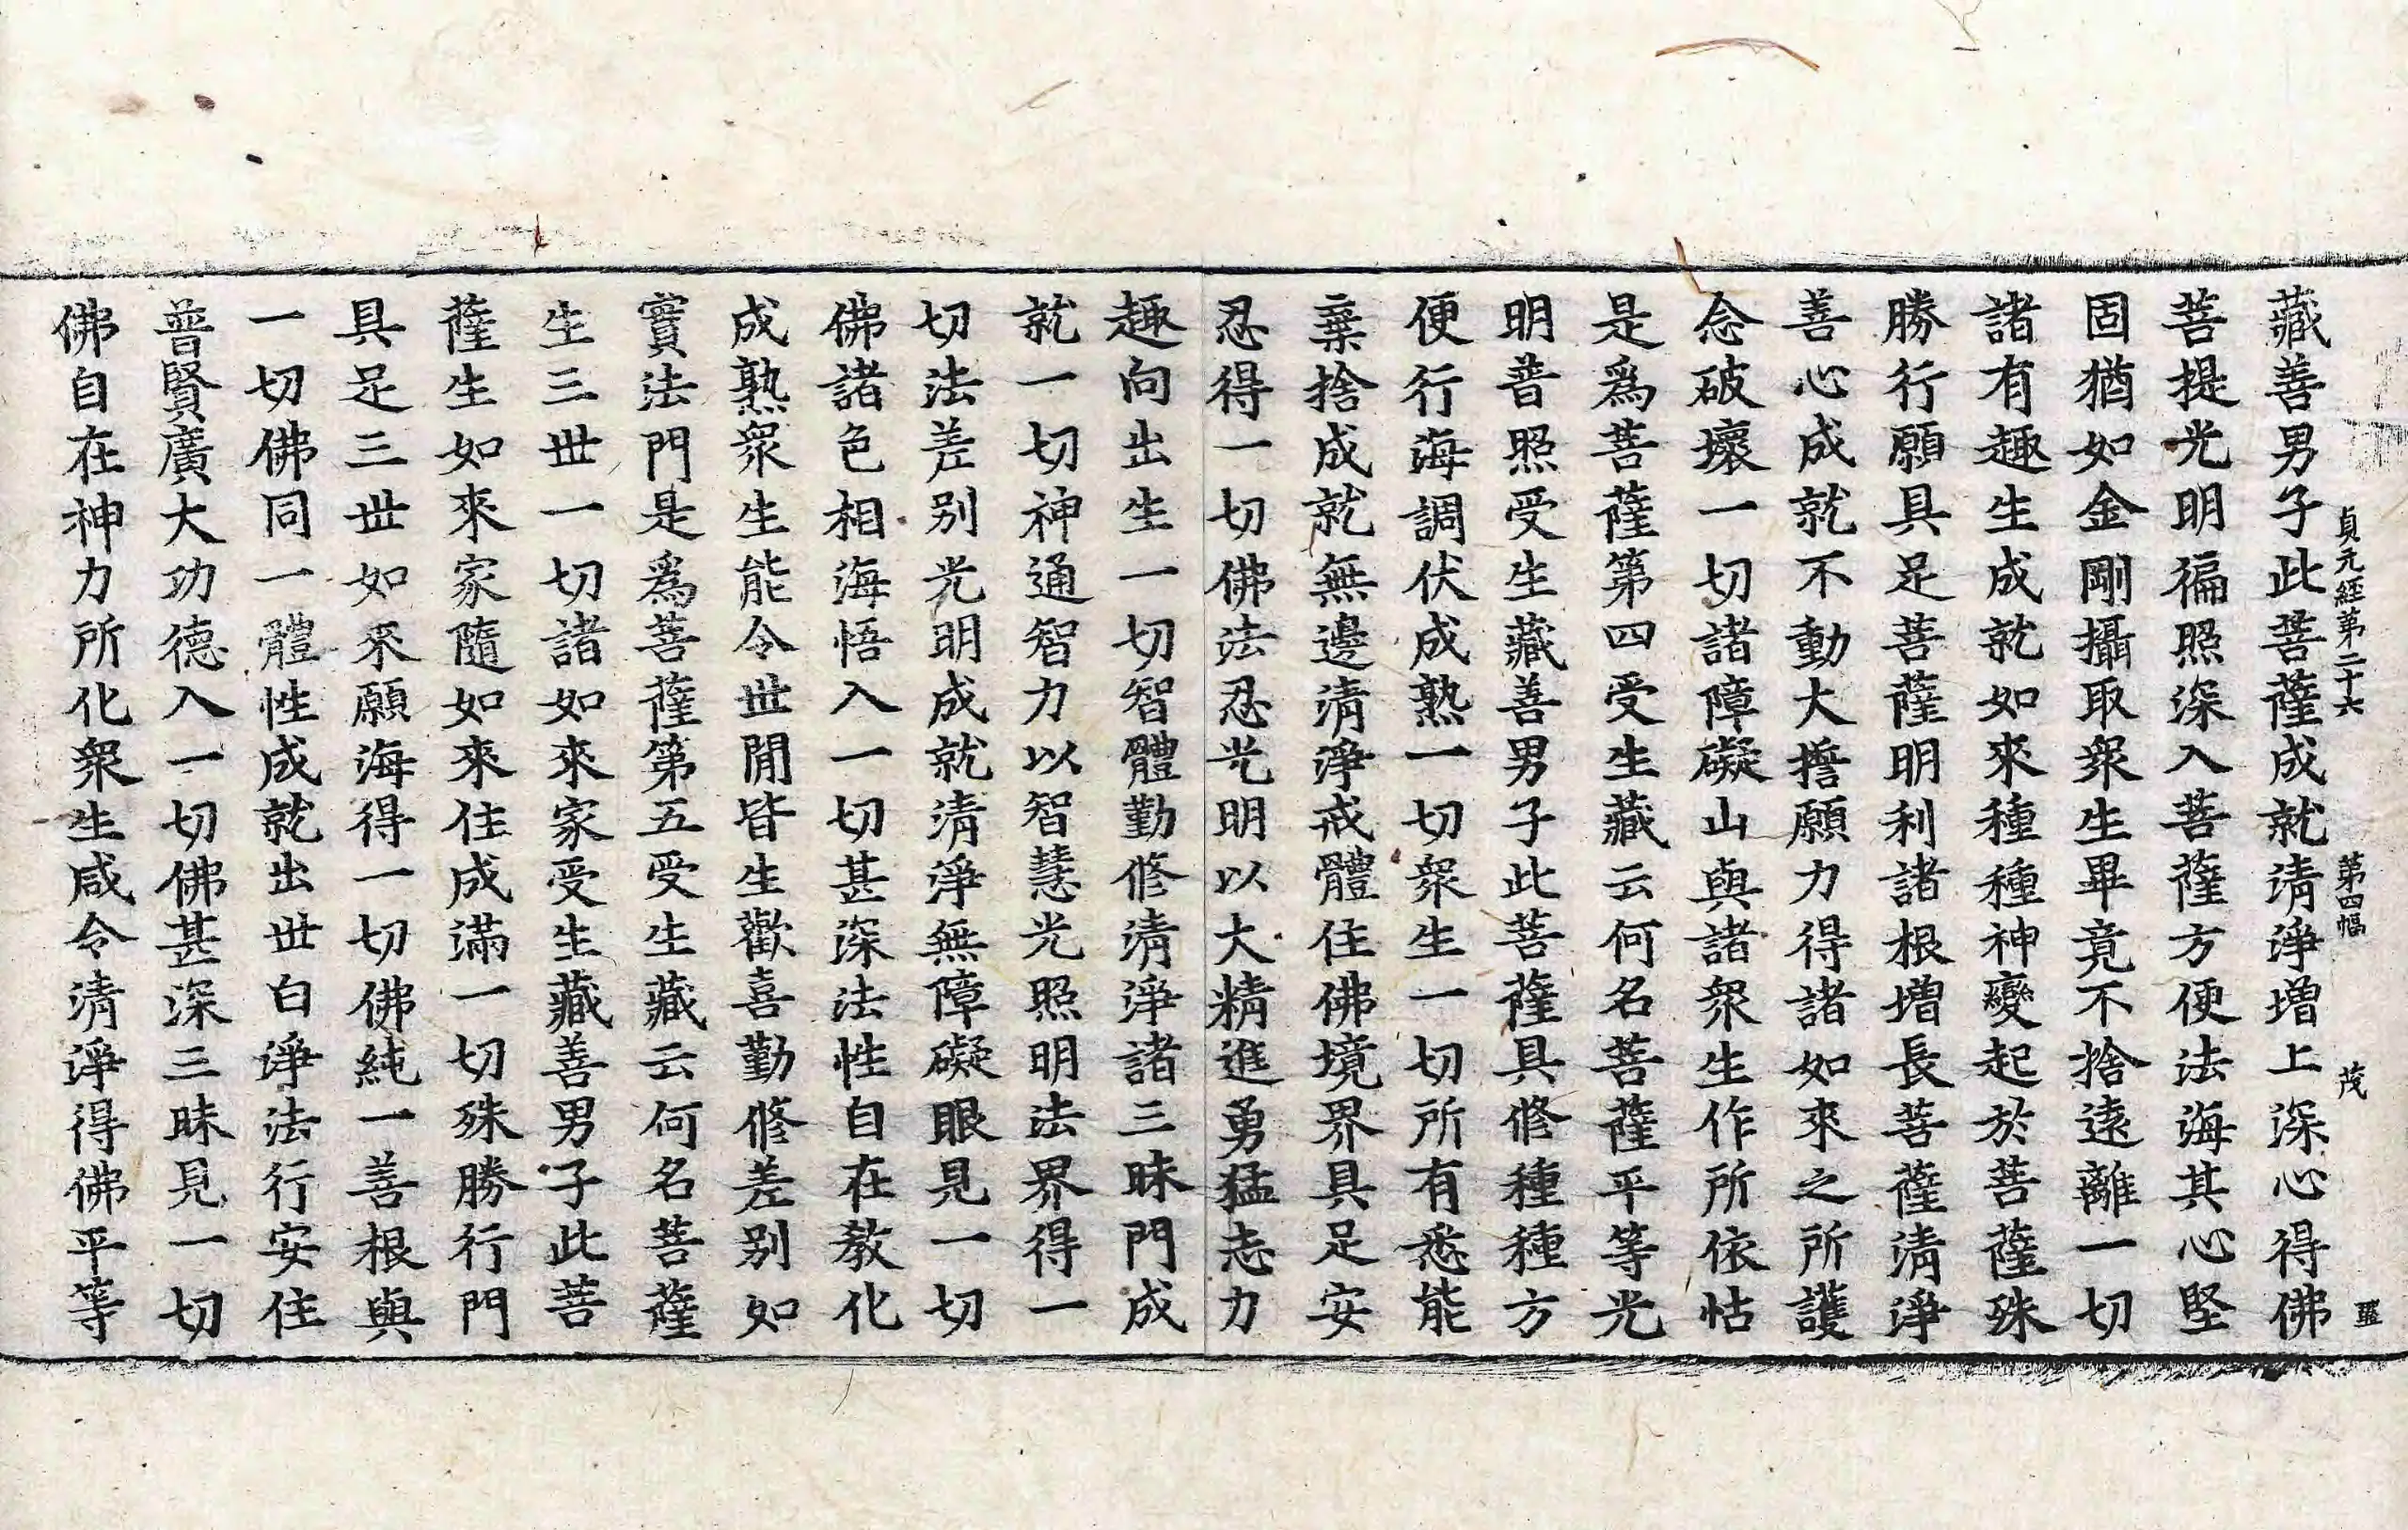 貞元経第二十六　第四幅　茂
藏善男子此菩薩成就清淨增上深心得佛
菩提光明徧照深入菩薩方便法海其心堅
固猶如金剛攝取衆生畢竟不捨遠離一切
諸有趣生成就如來種種神變起於菩薩殊
勝行願具足菩薩明利諸根增長菩薩清淨
善心成就不動大擔願力得諸如來之所護
念破壞一切諸障礙山與諸衆生作所依怙
是爲菩薩第四受生藏云何名菩薩平等光
明普照受生藏善男子此菩薩具修種種方
便行海調伏成熟一切衆生一切所有悉能
棄捨成就無邊清淨戒體住佛境界具足安
忍得一切佛法忍光明以大精進勇猛志力
趣向出生一切智體勤修清淨諸三昧門成
就一切神通智力以智慧光照明法界得一
切法差别光明成就清淨無障礙眼見一切
佛諸色相海悟入一切甚深法性自在教化
成熟衆生能令世間皆生歡喜勤修差别如
實法門是爲菩薩第五受生藏云何名菩薩
生三世一切諸如來家受生藏善男子此菩
薩生如來家隨如來住成滿一切殊勝行門
具足三世如来願海得一切佛純一善根與
一切佛同一體性成就出世白淨法行安住
普賢廣大功德入一切佛甚深三昧見一切
佛自在神力所化衆生咸令清淨得佛平等